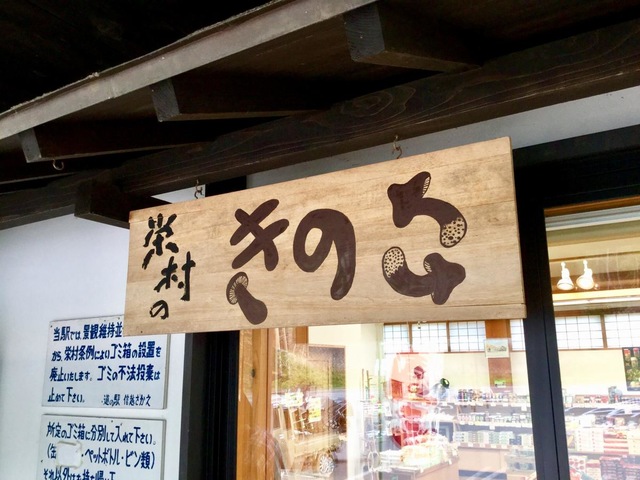 栄村の
きのこ
当駅では、景観維持並
から、栄村条例によりゴミ箱の設置を
廃止いたします。ゴミの不法投棄は
止めて下さい。
道の駅 信越さかえ
所定のゴミ箱に分別して入れて下さい。
ペットボトル・ビン類)